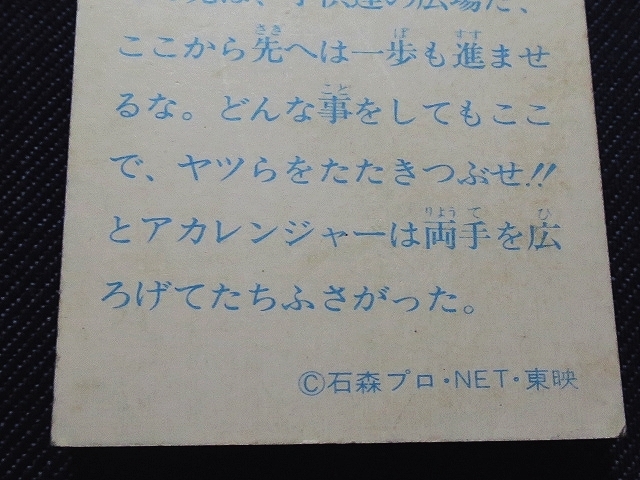 は、子供達の広場だ、
ここから先へは一歩も進ませ
るな。どんな事をしてもここ
で、ヤツらをたたきつぶせ!!
とアカレンジャーは両手を広
ろげてたちふさがった。
©石森プロ・NET・東映